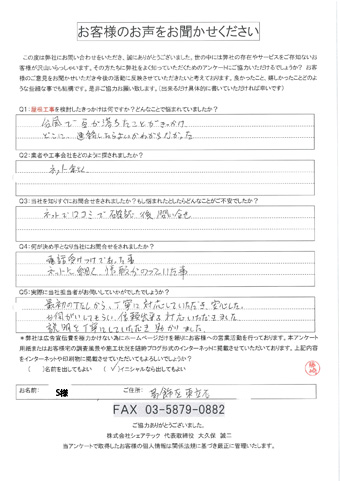 お客様のお声をお聞かせください
この度は弊社にお問い合わせをいただき、誠にありがとうございました。世の中には弊社の存在やサービスをご存知ないお
客様が沢山いらっしゃいます。その方たちに弊社をよく知っていただくためのアンケートにご協力いただけるでしょうか？ お客
様のご意見をお聞かせいただき今後の活動に反映させていただきたいと考えております。良かったこと、嬉しかったことどのよ
うな些細な事でも結構です。是非ご協力お願い致します。（出来るだけ具体的に書いていただければ幸いです）
Q1：屋根工事を検討したきっかけは何ですか？どんなことで悩まれていましたか？
台風で瓦が落ちたことがきっかけ
どこに、連絡したらよいかわからなかった
Q2：業者や工事会社をどのように探されましたか？
ネット
Q3：当社を知りすぐにお問合せをされましたか？もし悩まれたとしたらどんなことがご不安でしたか？
ネットで口コミで確認後 問い合せ
Q4：何が決め手となり当社にお問合せをされましたか？
電話受けつけであった事
ネットに
Q5：実際に当社担当者がお伺いしていかがでしたでしょうか？
丁寧に対応していただき、安心した。
信頼出来る対応いただきました
説明も丁寧にしていただき 助かりました。
＊弊社は広告宣伝費を極力かけない為にホームページだけを頼りにお客様への営業活動を行っております。本アンケート
用紙またはお客様宅の調査風景や施工状況を随時ブログ形式でインターネットに掲載させていただいております。上記内容
をインターネットや印刷物に掲載させていただいてもよろしいでしょうか？
（　）名前を出してもよい　（✓）イニシャルなら出してもよい
お名前： S様　ご住所： 葛飾区東立石
FAX 03-5879-0882
ご協力ありがとうございました。
株式会社シェアテック 代表取締役 大久保 誠二
当アンケートで取得したお客様の個人情報は関係法規に基づき厳正に管理いたします。